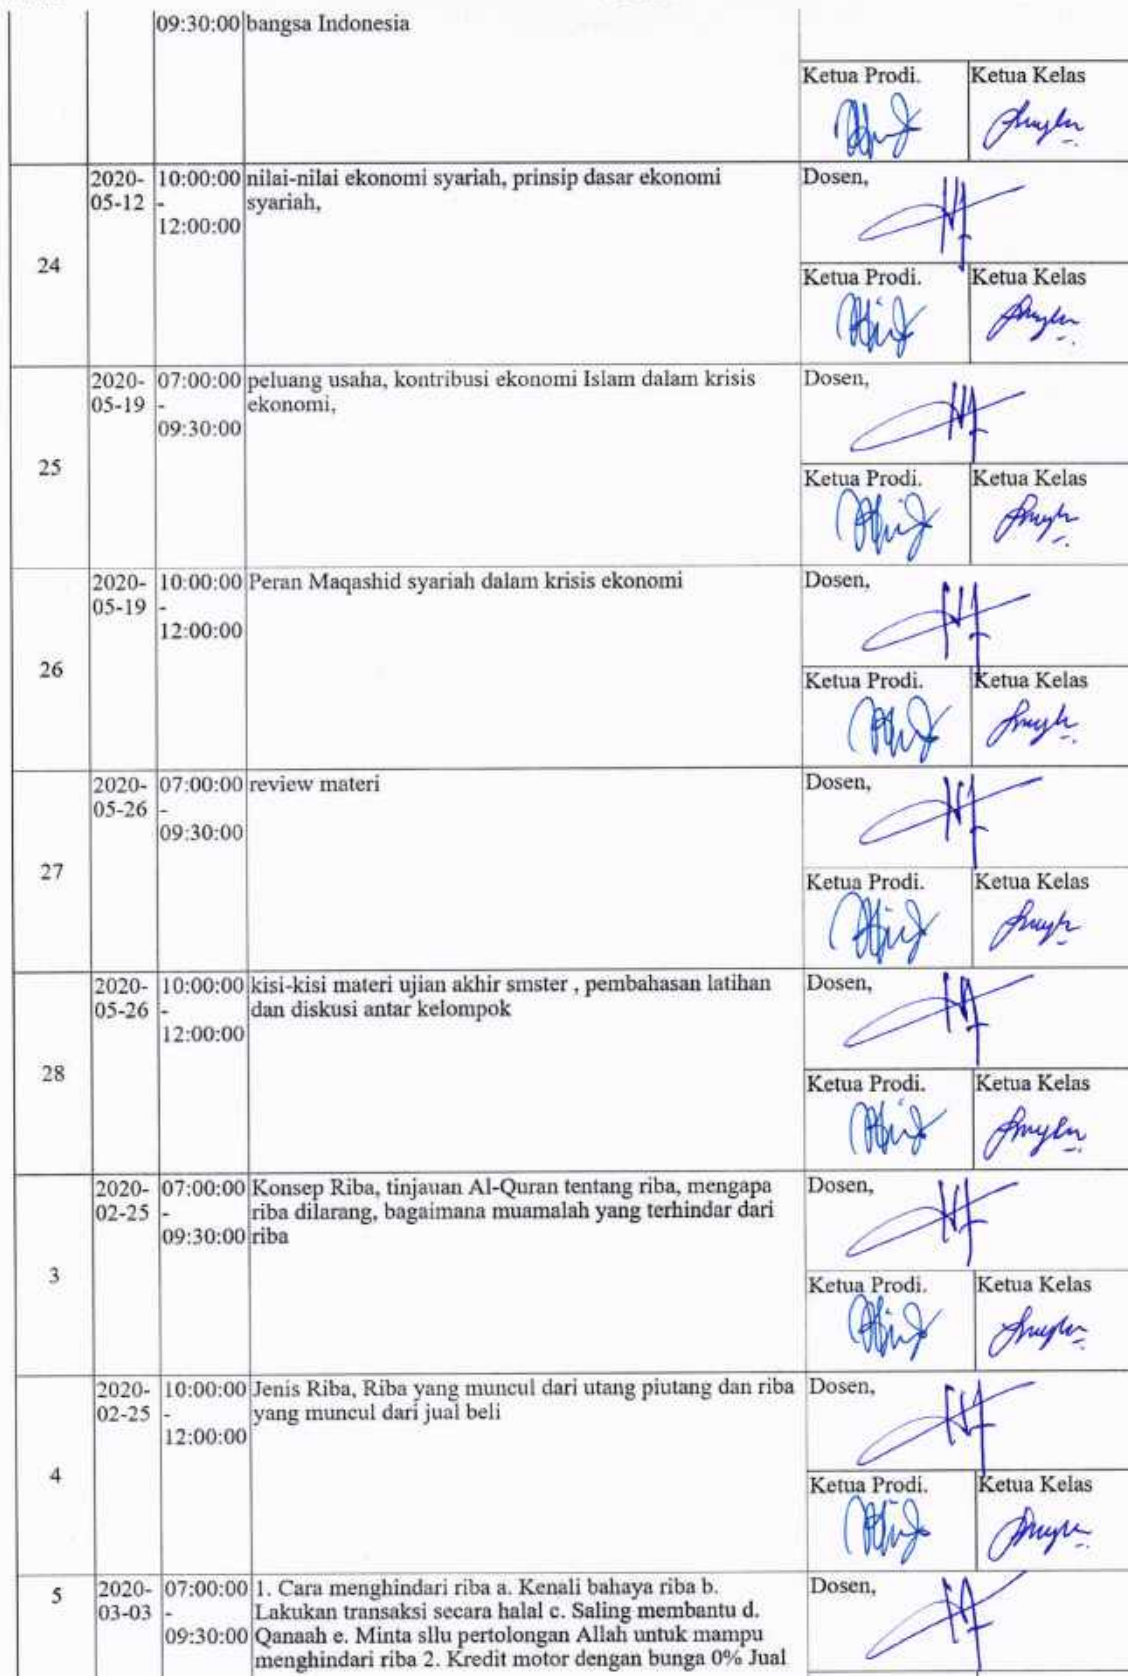 09:30:00 bangsa Indonesia
Ketua Prodi. Ketua Kelas
24
2020-05-12
10:00:00 - 12:00:00
nilai-nilai ekonomi syariah, prinsip dasar ekonomi
syariah,
Dosen,
Ketua Prodi. Ketua Kelas
25
2020-05-19
07:00:00 - 09:30:00
peluang usaha, kontribusi ekonomi Islam dalam krisis
ekonomi,
Dosen,
Ketua Prodi. Ketua Kelas
26
2020-05-19
10:00:00 - 12:00:00
Peran Maqashid syariah dalam krisis ekonomi
Dosen,
Ketua Prodi. Ketua Kelas
27
2020-05-26
07:00:00 - 09:30:00
review materi
Dosen,
Ketua Prodi. Ketua Kelas
28
2020-05-26
10:00:00 - 12:00:00
kisi-kisi materi ujian akhir smster , pembahasan latihan
dan diskusi antar kelompok
Dosen,
Ketua Prodi. Ketua Kelas
3
2020-02-25
07:00:00 - 09:30:00
Konsep Riba, tinjauan Al-Quran tentang riba, mengapa
riba dilarang, bagaimana muamalah yang terhindar dari
riba
Dosen,
Ketua Prodi. Ketua Kelas
4
2020-02-25
10:00:00 - 12:00:00
Jenis Riba, Riba yang muncul dari utang piutang dan riba
yang muncul dari jual beli
Dosen,
Ketua Prodi. Ketua Kelas
5
2020-03-03
07:00:00 - 09:30:00
1. Cara menghindari riba a. Kenali bahaya riba b.
Lakukan transaksi secara halal c. Saling membantu d.
Qanaah e. Minta sllu pertolongan Allah untuk mampu
menghindari riba 2. Kredit motor dengan bunga 0% Jual
Dosen,